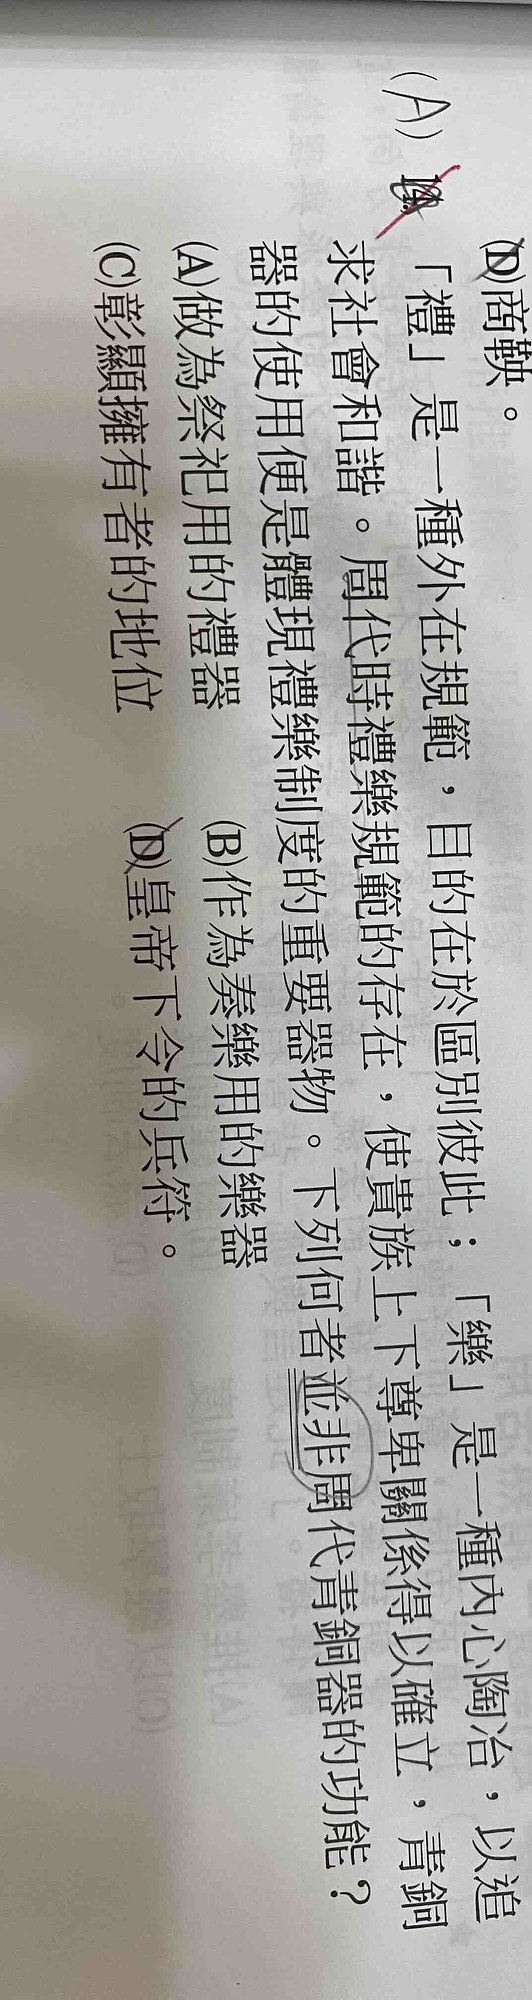 (D)商鞅。
(A) 14. 「禮」是一種外在規範，目的在於區別彼此；「樂」是一種內心陶冶，以追
求社會和諧。周代時禮樂規範的存在，使貴族上下尊卑關係得以確立，青銅
器的使用便是體現禮樂制度的重要器物。下列何者並非周代青銅器的功能？
(A)做為祭祀用的禮器 (B)作為奏樂用的樂器
(C)彰顯擁有者的地位 (D)皇帝下令的兵符。